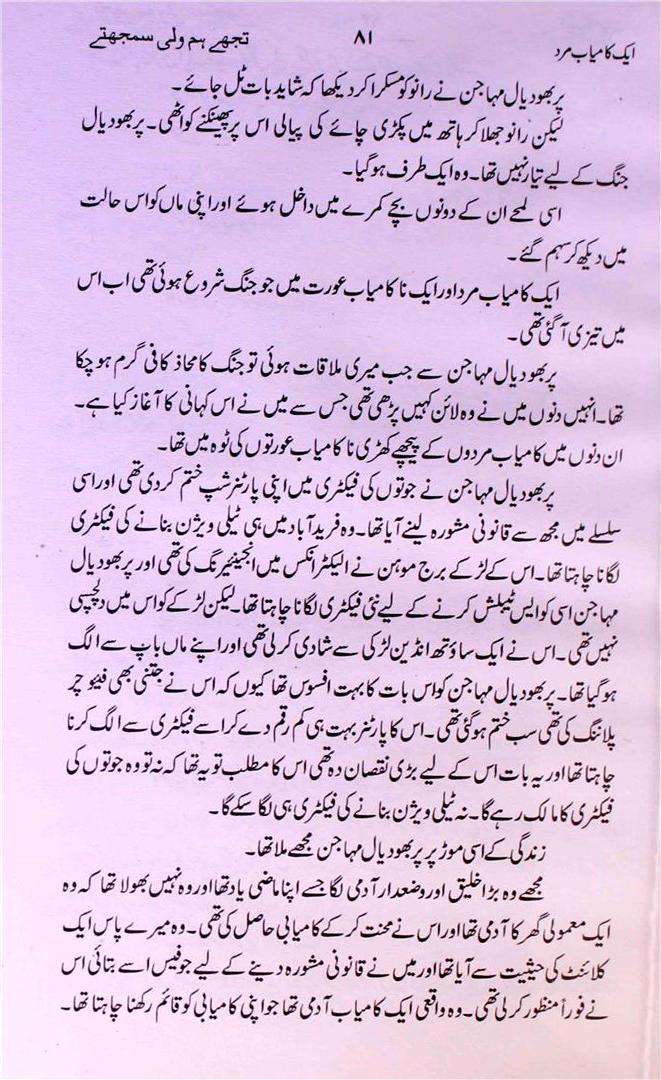 ایک کامیاب مرد ۸۱ تجھے ہم ولی سمجھتے
پربھودیال مہاجن نے رانو کو مسکرا کر دیکھا کہ شاید بات ٹل جائے۔
لیکن رانو جھلا کر ہاتھ میں پکڑی چائے کی پیالی اس پر پھینکنے کو اٹھی۔ پربھودیال
جنگ کے لیے تیار نہیں تھا۔ وہ ایک طرف ہو گیا۔
اسی لمحے ان کے دونوں بچے کمرے میں داخل ہوئے اور اپنی ماں کو اس حالت
میں دیکھ کر سہم گئے۔
ایک کامیاب مرد اور ایک ناکامیاب عورت میں جو جنگ شروع ہوئی تھی اب اس
میں تیزی آ گئی تھی۔
پربھودیال مہاجن سے جب میری ملاقات ہوئی تو جنگ کا محاذ کافی گرم ہو چکا
تھا۔ انہیں دنوں میں نے وہ لائن کہیں پڑھی تھی جس سے میں نے اس کہانی کا آغاز کیا ہے۔
ان دنوں میں کامیاب مردوں کے پیچھے کھڑی ناکامیاب عورتوں کی ٹوہ میں تھا۔
پربھودیال مہاجن نے جوتوں کی فیکٹری میں اپنی پارٹنر شپ ختم کر دی تھی اور اسی
سلسلے میں مجھ سے قانونی مشورہ لینے آیا تھا۔ وہ فرید آباد میں ہی ٹیلی ویژن بنانے کی فیکٹری
لگانا چاہتا تھا۔ اس کے لڑکے برج موہن نے الیکٹرانکس میں انجینئرنگ کی تھی اور پربھودیال
مہاجن اسی کو ایس ٹیبلش کرنے کے لیے نئی فیکٹری لگانا چاہتا تھا۔ لیکن لڑکے کو اس میں دلچسپی
نہیں تھی۔ اس نے ایک ساؤتھ انڈین لڑکی سے شادی کر لی تھی اور اپنے ماں باپ سے الگ
ہو گیا تھا۔ پربھودیال مہاجن کو اس بات کا بہت افسوس تھا کیوں کہ اس نے جتنی بھی فیوچر
پلاننگ کی تھی سب ختم ہو گئی تھی۔ اس کا پارٹنر بہت ہی کم رقم دے کر اسے فیکٹری سے الگ کرنا
چاہتا تھا اور یہ بات اس کے لیے بڑی نقصان دہ تھی اس کا مطلب تو یہ تھا کہ نہ تو وہ جوتوں کی
فیکٹری کا مالک رہے گا۔ نہ ٹیلی ویژن بنانے کی فیکٹری ہی لگا سکے گا۔
زندگی کے اسی موڑ پر پربھودیال مہاجن مجھے ملا تھا۔
مجھے وہ بڑا خلیق اور وضعدار آدمی لگا جسے اپنا ماضی یاد تھا اور وہ نہیں بھولا تھا کہ وہ
ایک معمولی گھر کا آدمی تھا اور اس نے محنت کر کے کامیابی حاصل کی تھی۔ وہ میرے پاس ایک
کلائنٹ کی حیثیت سے آیا تھا اور میں نے قانونی مشورہ دینے کے لیے جو فیس اسے بتائی اس
نے فوراً منظور کر لی تھی۔ وہ واقعی ایک کامیاب آدمی تھا جو اپنی کامیابی کو قائم رکھنا چاہتا تھا۔